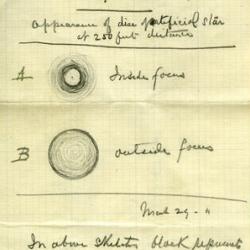 Appearance of disc of artificial star
at 250 feet distance
A Inside focus
B outside focus
In above sketches black represents